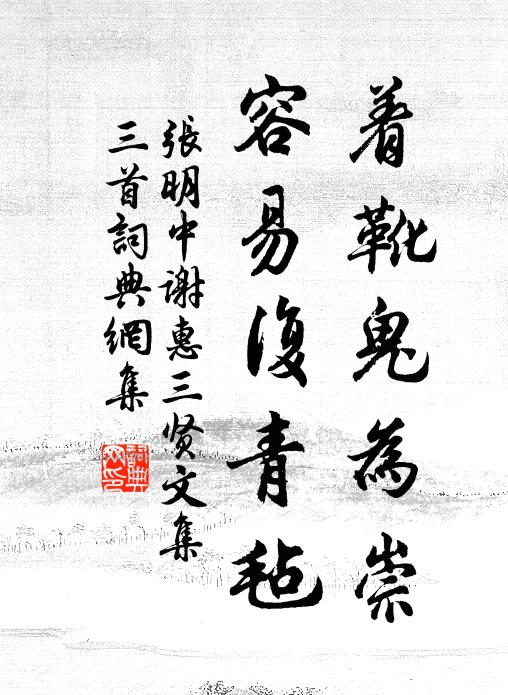 着靴鬼為祟
容易復青毡
張明中謝惠三贤文集
三首詞典網集
詞典
网印